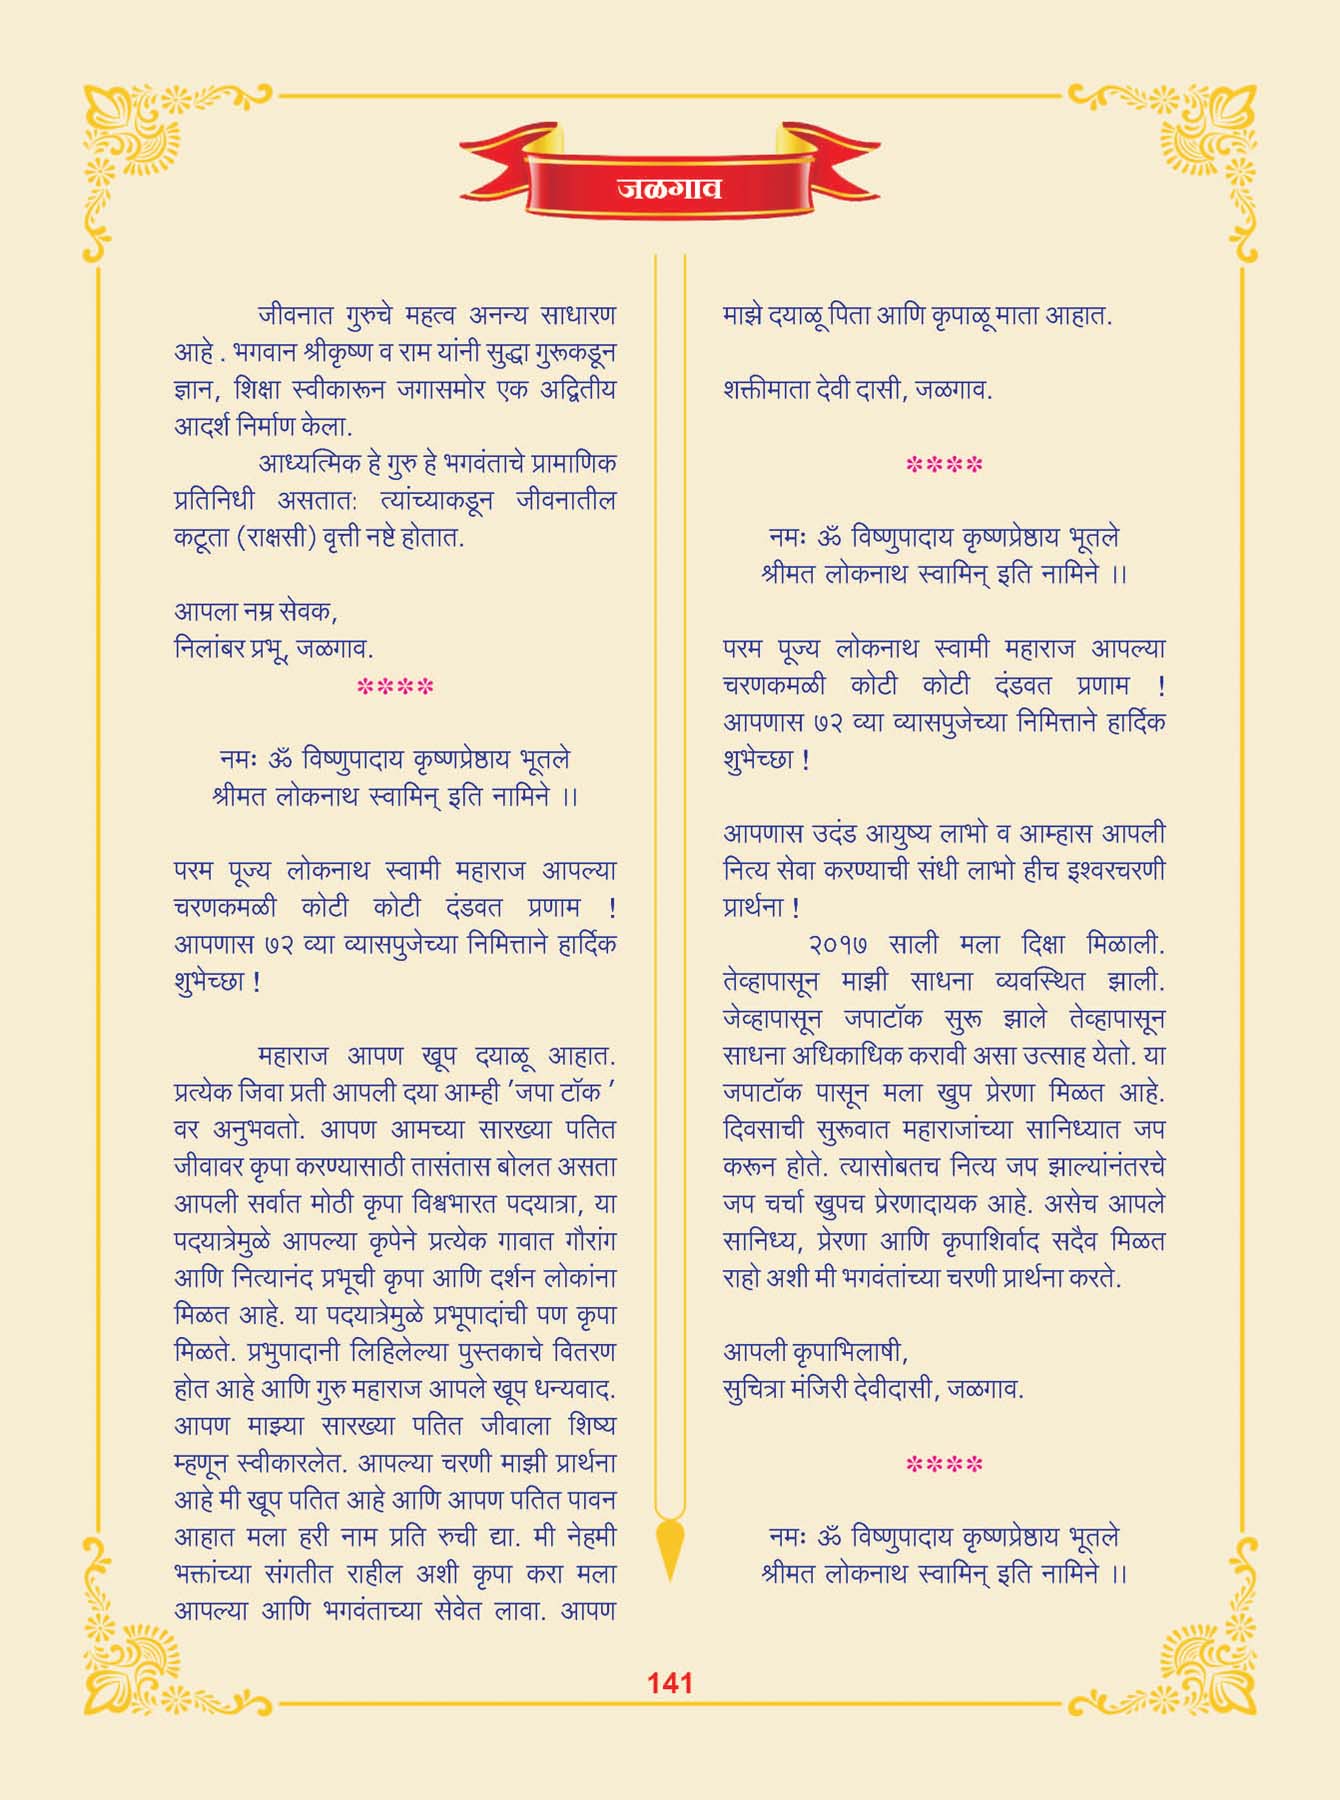 जळगाव
जीवनात गुरुचे महत्व अनन्य साधारण
आहे . भगवान श्रीकृष्ण व राम यांनी सुद्धा गुरूकडून
ज्ञान, शिक्षा स्वीकारून जगासमोर एक अद्वितीय
आदर्श निर्माण केला.
आध्यत्मिक हे गुरु हे भगवंताचे प्रामाणिक
प्रतिनिधी असतातः त्यांच्याकडून जीवनातील
कटूता (राक्षसी) वृत्ती नष्टे होतात.
आपला नम्र सेवक,
निलांबर प्रभू, जळगाव.
****
नमः ॐ विष्णुपादाय कृष्णप्रेष्ठाय भूतले
श्रीमत लोकनाथ स्वामिन् इति नामिने ।।
परम पूज्य लोकनाथ स्वामी महाराज आपल्या
चरणकमळी कोटी कोटी दंडवत प्रणाम !
आपणास ७२ व्या व्यासपुजेच्या निमित्ताने हार्दिक
शुभेच्छा !
महाराज आपण खूप दयाळू आहात.
प्रत्येक जिवा प्रती आपली दया आम्ही ’जपा टॉक ’
वर अनुभवतो. आपण आमच्या सारख्या पतित
जीवावर कृपा करण्यासाठी तासंतास बोलत असता
आपली सर्वात मोठी कृपा विश्वभारत पदयात्रा, या
पदयात्रेमुळे आपल्या कृपेने प्रत्येक गावात गौरांग
आणि नित्यानंद प्रभूची कृपा आणि दर्शन लोकांना
मिळत आहे. या पदयात्रेमुळे प्रभूपादांची पण कृपा
मिळते. प्रभुपादानी लिहिलेल्या पुस्तकाचे वितरण
होत आहे आणि गुरु महाराज आपले खूप धन्यवाद.
आपण माझ्या सारख्या पतित जीवाला शिष्य
म्हणून स्वीकारलेत. आपल्या चरणी माझी प्रार्थना
आहे मी खूप पतित आहे आणि आपण पतित पावन
आहात मला हरी नाम प्रति रुची द्या. मी नेहमी
भक्तांच्या संगतीत राहील अशी कृपा करा मला
आपल्या आणि भगवंताच्या सेवेत लावा. आपण
माझे दयाळू पिता आणि कृपाळू माता आहात.
शक्तीमाता देवी दासी, जळगाव.
****
नमः ॐ विष्णुपादाय कृष्णप्रेष्ठाय भूतले
श्रीमत लोकनाथ स्वामिन् इति नामिने ।।
परम पूज्य लोकनाथ स्वामी महाराज आपल्या
चरणकमळी कोटी कोटी दंडवत प्रणाम !
आपणास ७२ व्या व्यासपुजेच्या निमित्ताने हार्दिक
शुभेच्छा !
आपणास उदंड आयुष्य लाभो व आम्हास आपली
नित्य सेवा करण्याची संधी लाभो हीच इश्वरचरणी
प्रार्थना !
२०१७ साली मला दिक्षा मिळाली.
तेव्हापासून माझी साधना व्यवस्थित झाली.
जेव्हापासून जपाटॉक सुरू झाले तेव्हापासून
साधना अधिकाधिक करावी असा उत्साह येतो. या
जपाटॉक पासून मला खुप प्रेरणा मिळत आहे.
दिवसाची सुरूवात महाराजांच्या सानिध्यात जप
करून होते. त्यासोबतच नित्य जप झाल्यांनंतरचे
जप चर्चा खुपच प्रेरणादायक आहे. असेच आपले
सानिध्य, प्रेरणा आणि कृपाशिर्वाद सदैव मिळत
राहो अशी मी भगवंतांच्या चरणी प्रार्थना करते.
आपली कृपाभिलाषी,
सुचित्रा मंजिरी देवीदासी, जळगाव.
****
नमः ॐ विष्णुपादाय कृष्णप्रेष्ठाय भूतले
श्रीमत लोकनाथ स्वामिन् इति नामिने ।।
141